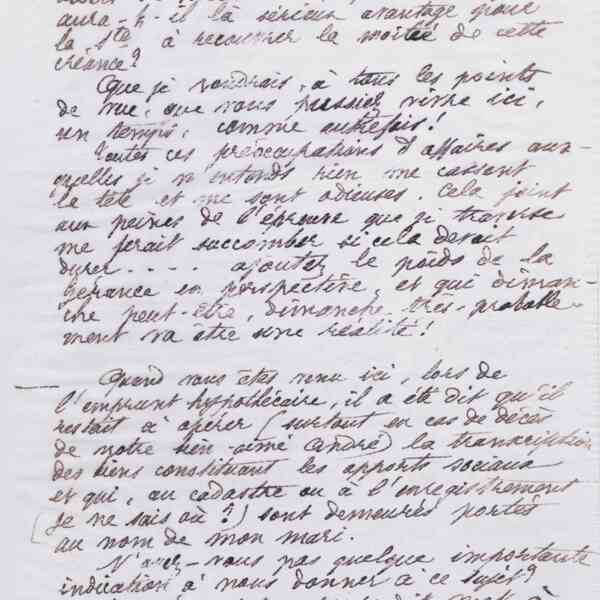 aura-t-il là sérieux avantage pour
la Sté à recouvrer la moitié de cette
créance?
Que je voudrais, à tous les points
de vue, que vous pussiez vivre ici,
un temps, comme autrefois!
Toutes ces préoccupations d'affaires aux-
quelles je n'entends rien me cassent
la tête et me sont odieuses. Cela joint
aux peines de l'épreuve que je traverse
me ferait succomber si cela devait
durer..... ajoutez le poids de la
gérance en perspective, et qui diman-
che peut-être, dimanche très-probable-
ment va être une réalité!
Quand vous êtes venu ici, lors de
l'emprunt hypothécaire, il a été dit qu'il
restait à opérer (surtout en cas de décès
de notre bien-aimé André) la transcription
des biens constituant les apports sociaux
et qui, au cadastre ou à l'enregistrement
(je ne sais où?) sont demeurés portés
au nom de mon mari.
N'avez-vous pas quelque importante
indication à nous donner à ce sujet?